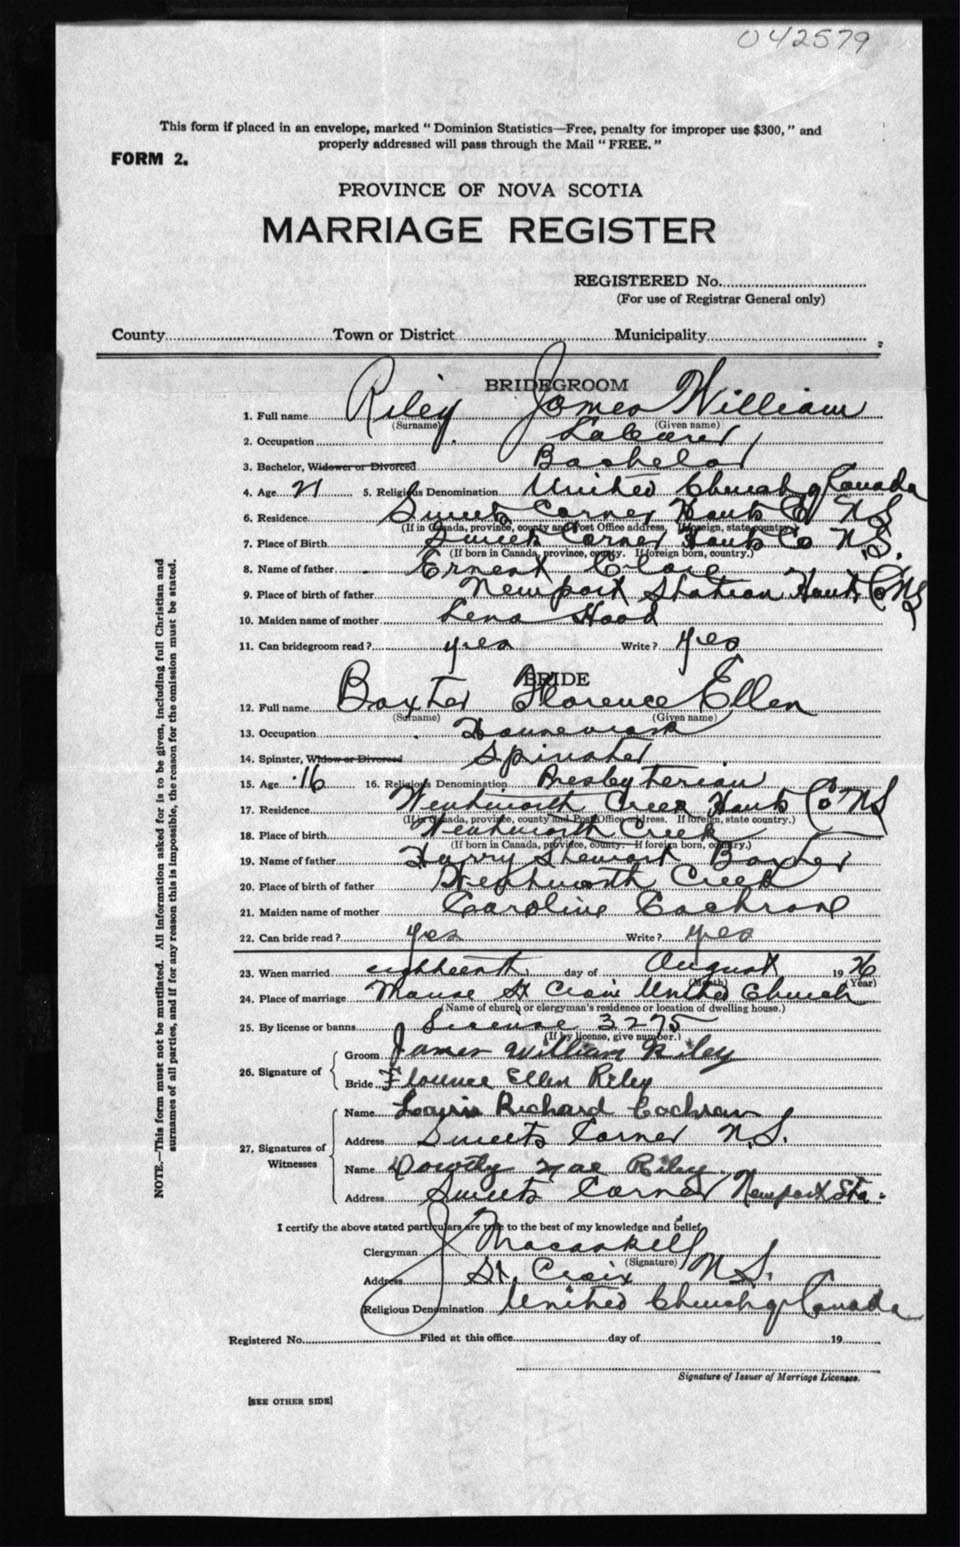 042579
This form if placed in an envelope, marked "Dominion Statistics—Free, penalty for improper use $300," and
properly addressed will pass through the Mail "FREE."
FORM 2.
PROVINCE OF NOVA SCOTIA
MARRIAGE REGISTER
REGISTERED No.
(For use of Registrar General only)
County Town or District Municipality
BRIDEGROOM
1. Full name Riley James William
(Surname) (Given name)
2. Occupation Laborer
3. Bachelor, Widower or Divorced Bachelor
4. Age 21 5. Religious Denomination United Church of Canada
6. Residence Sweets Corner Hants Co NS
(If in Canada, province, county and Post Office address. If foreign, state country.)
7. Place of Birth Sweets Corner Hants Co N.S.
(If born in Canada, province, county. If foreign born, country.)
8. Name of father Ernest
9. Place of birth of father Newport Station Hants Co NS
10. Maiden name of mother Lena Hood
11. Can bridegroom read? yes Write? yes
BRIDE
12. Full name Baxter Florence Ellen
(Surname) (Given name)
13. Occupation Housework
14. Spinster, Widow or Divorced Spinster
15. Age 16 16. Religious Denomination Presbyterian
17. Residence Wentworth Creek Hants Co NS
(If in Canada, province, county and Post Office address. If foreign, state country.)
18. Place of birth Wentworth Creek
(If born in Canada, province, county. If foreign born, country.)
19. Name of father Harry Stewart Baxter
20. Place of birth of father Wentworth Creek
21. Maiden name of mother Caroline Cochrane
22. Can bride read? yes Write? yes
23. When married eighteenth day of August 1926
(Month) (Year)
24. Place of marriage Manse St Croix United Church
(Name of church or clergyman's residence or location of dwelling house.)
25. By license or banns License 3275
(If by license, give number.)
26. Signature of Groom James William Riley
Bride Florence Ellen Riley
27. Signatures of Witnesses Name Richard Cochran
Address Sweets Corner N.S.
Name Dorothy Mae Riley
Address Sweets Corner Newport Sta.
I certify the above stated particulars are true to the best of my knowledge and belief,
Clergyman J Macaskill
(Signature)
Address St. Croix N.S.
Religious Denomination United Church of Canada
Registered No. Filed at this office day of 19
Signature of Issuer of Marriage Licenses.
[SEE OTHER SIDE]
NOTE.—This form must not be mutilated. All information asked for is to be given, including full Christian and
surnames of all parties, and if for any reason this is impossible, the reason for the omission must be stated.